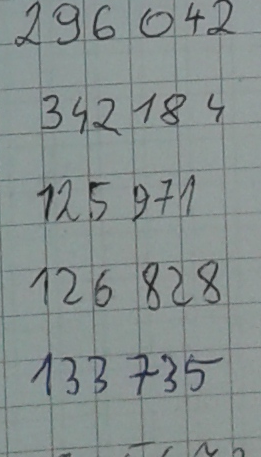 296 042
342 184
125 971
126 828
133 735